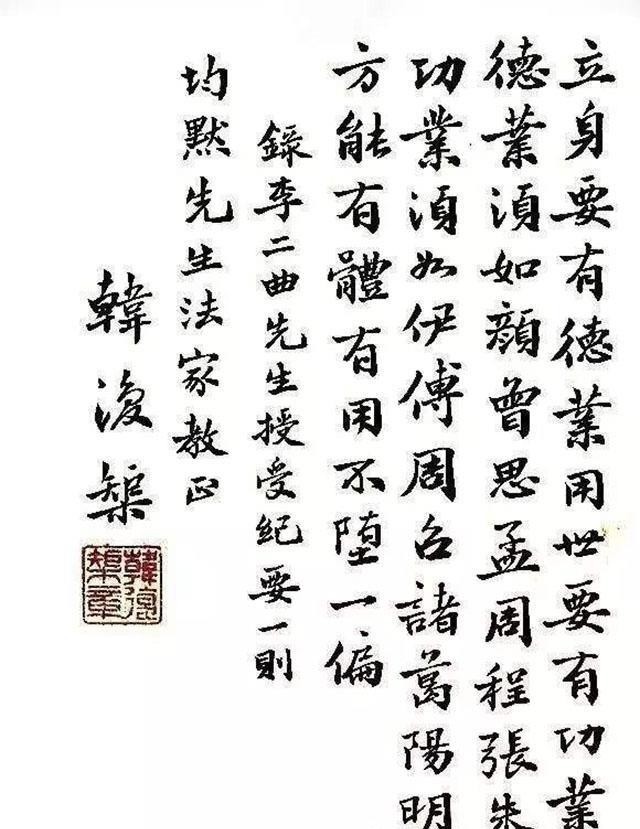 立身要有德業用世要有功業
德業須如顔曾思孟周程張朱
功業須如伊傅周召諸葛陽明
方能有體有用不墮一偏
錄李二曲先生授受紀要一則
均默先生法家教正
韓復榘
韓復
榘章